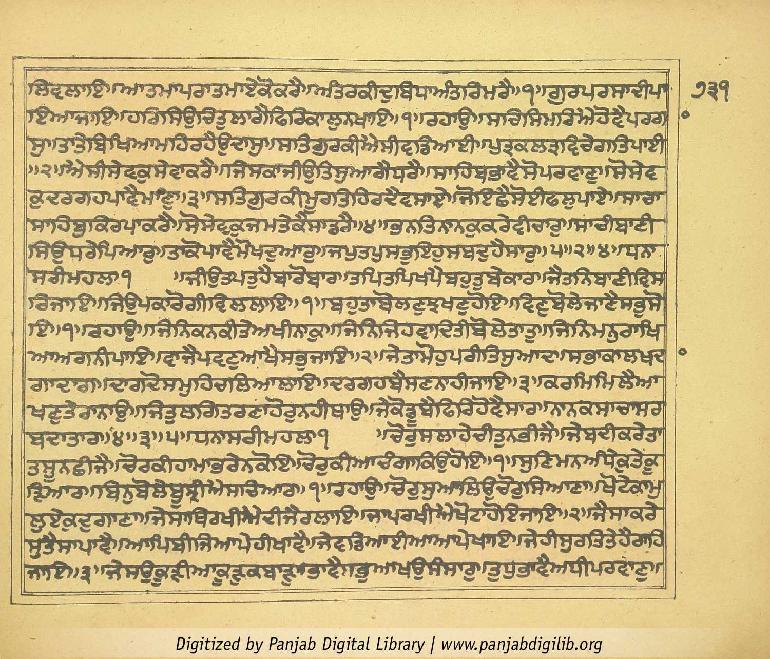 ਲਿਵਲਾਇ॥ਆਤਮਾਪਰਾਤਮਾਏਕੋਕਰੈ॥ਅੰਤਰਿਕੀਦੁਬਿਧਾਅੰਤਰਿਮਰੈ॥੧॥ਗੁਰਪਰਸਾਦੀਪਾ ੭੩੧
ਇਆਜਾਇ॥ਹਰਿਸਿਉਚਿਤੁਲਾਗੈਫਿਰਿਕਾਲੁਨਖਾਇ॥੧॥ਰਹਾਉ॥ਸਚਿਸਿਮਰਿਐਹੋਵੈਪਰਗਾ
ਸੁ॥ਤਾਤੇਬਿਖਿਆਮਹਿਰਹੈਉਦਾਸੁ॥ਸਤਿਗੁਰਕੀਐਸੀਵਡਿਆਈ॥ਪੁਤ੍ਰਕਲਤ੍ਰਵਿਚੇਗਤਿਪਾਈ
॥੨॥ਐਸੀਸੇਵਕੁਸੇਵਾਕਰੈ॥ਜਿਸਕਾਜੀਉਤਿਸੁਆਗੈਧਰੈ॥ਸਾਹਿਬਭਾਵੈਸੋਪਰਵਾਣੁ॥ਸੋਸੇਵ
ਕੁਦਰਗਹਪਾਵੈਮਾਣੁ॥੩॥ਸਤਿਗੁਰਕੀਮੂਰਤਿਹਿਰਦੈਵਸਾਏ॥ਜੋਇਛੈਸੋਈਫਲੁਪਾਏ॥ਸਾਚਾ
ਸਾਹਿਬੁਕਿਰਪਾਕਰੈ॥ਸੋਸੇਵਕੁਜਮਤੇਕੈਸਾਡਰੈ॥੪॥ਭਨਤਿਨਾਨਕੁਕਰੇਵੀਚਾਰੁ॥ਸਾਚੀਬਾਣੀ
ਸਿਉਧਰੇਪਿਆਰੁ॥ਤਾਕੋਪਾਵੈਮੋਖਦੁਆਰੁ॥ਜਪੁਤਪੁਸਭੁਇਹੁਸਬਦੁਹੈਸਾਰੁ॥੫॥੨॥੪॥ਧਨਾ
ਸਰੀਮਹਲਾ੧ ॥ਜੀਉਤਪਤੁਹੈਬਾਰੋਬਾਰ॥ਤਪਿਤਪਿਖਪੈਬਹੁਤੁਬੇਕਾਰ॥ਜੈਤਨਿਬਾਣੀਵਿਸ
ਰਿਜਾਇ॥ਜਿਉਪਕਾਰੋਗੀਵਿਲਲਾਇ॥੧॥ਬਹੁਤਾਬੋਲਣੁਝਖਣੁਹੋਇ॥ਵਿਣੁਬੋਲੇਜਾਣੈਸਭੁਸੋ
ਇ॥੧॥ਰਹਾਉ॥ਜਿਨਿਕਨਕੀਤੇਅਖੀਨਾਕੁ॥ਜਿਨਿਜਿਹਵਾਦਿਤੀਬੋਲੇਤਾਤੁ॥ਜਿਨਿਮਨੁਰਾਖਿ
ਆਅਗਨੀਪਾਇ॥ਵਾਜੈਪਵਣੁਆਖੈਸਭਜਾਇ॥੨॥ਜੇਤਾਮੋਹੁਪਰੀਤਿਸੁਆਦ॥ਸਭਾਕਾਲਖਦਾ
ਗਾਦਾਗ॥ਦਾਗਦੋਸਮੁਹਿਚਲਿਆਲਾਇ॥ਦਰਗਹਬੈਸਣਨਾਹੀਜਾਇ॥੩॥ਕਰਮਿਮਿਲੈਆ
ਖਣੁਤੇਰਾਨਾਉ॥ਜਿਤੁਲਗਿਤਰਣਾਹੋਰੁਨਹੀਥਾਉ॥ਜੇਕੋਡੂਬੈਫਿਰਿਹੋਵੈਸਾਰ॥ਨਾਨਕਸਾਚਾਸਰ
ਬਦਾਤਾਰ॥੪॥੩॥੫॥ਧਨਾਸਰੀਮਹਲਾ੧ ॥ਚੋਰੁਸਲਾਹੇਚੀਤੁਨਭੀਜੈ॥ਜੇਬਦੀਕਰੇਤਾ
ਤਸੂਨਛੀਜੈ॥ਚੋਰਕੀਹਾਮਾਭਰੇਨਕੋਇ॥ਚੋਰੁਕੀਆਚੰਗਾਕਿਉਹੋਇ॥੧॥ਸੁਣਿਮਨਅੰਧੇਕੁਤੇਕੂ
ੜਿਆਰ॥ਬਿਨੁਬੋਲੇਬੂਝੀਐਸਚਿਆਰ॥੧॥ਰਹਾਉ॥ਚੋਰੁਸੁਆਲਿਉਚੋਰੁਸਿਆਣਾ॥ਖੋਟੇਕਾਮੁ
ਲੁਏਕੁਦੁਗਾਣਾ॥ਜੇਸਾਥਿਰਖੀਐਦੀਜੈਰਲਾਇ॥ਜਾਪਰਖੀਐਖੋਟਾਹੋਇਜਾਇ॥੨॥ਜੈਸਾਕਰੇ
ਸੁਤੈਸਾਪਾਵੈ॥ਆਪਿਬੀਜਿਆਪੇਹੀਖਾਵੈ॥ਜੇਵਡਿਆਈਆਆਪੇਖਾਇ॥ਜੇਹੀਸੁਰਤਿਤੇਹੈਰਾਹਿ
ਜਾਇ॥੩॥ਜੇਸਉਕੂੜੀਆਕੂੜੁਕਬਾੜੁ॥ਭਾਵੈਸਭੁਆਖਉਸੰਸਾਰੁ॥ਤੁਧੁਭਾਵੈਅਧੀਪਰਵਾਣੁ॥
Digitized by Panjab Digital Library | www.panjabdigilib.org